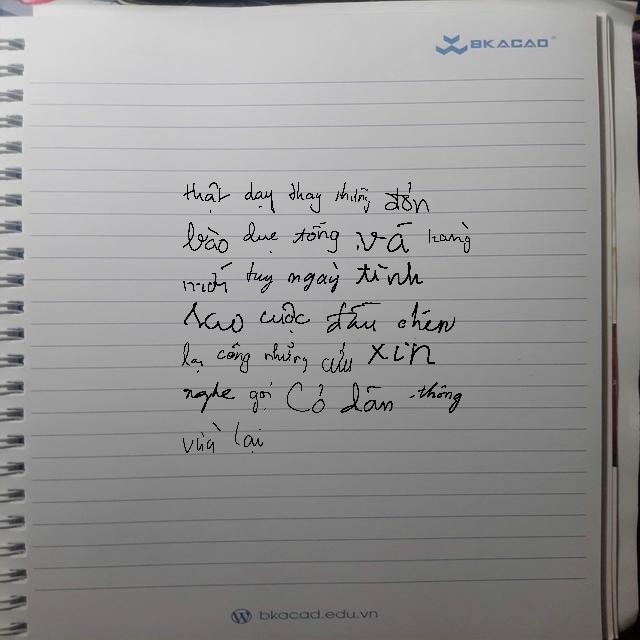 BKACAD
thật dạy thay những đón
vào dục tống vá hàng
mới tuy ngày tình
sao cuộc đấu chén
lạ công những cửu xin
nghe gọi Cỏ dân thông
vừa lại
bkacad.edu.vn